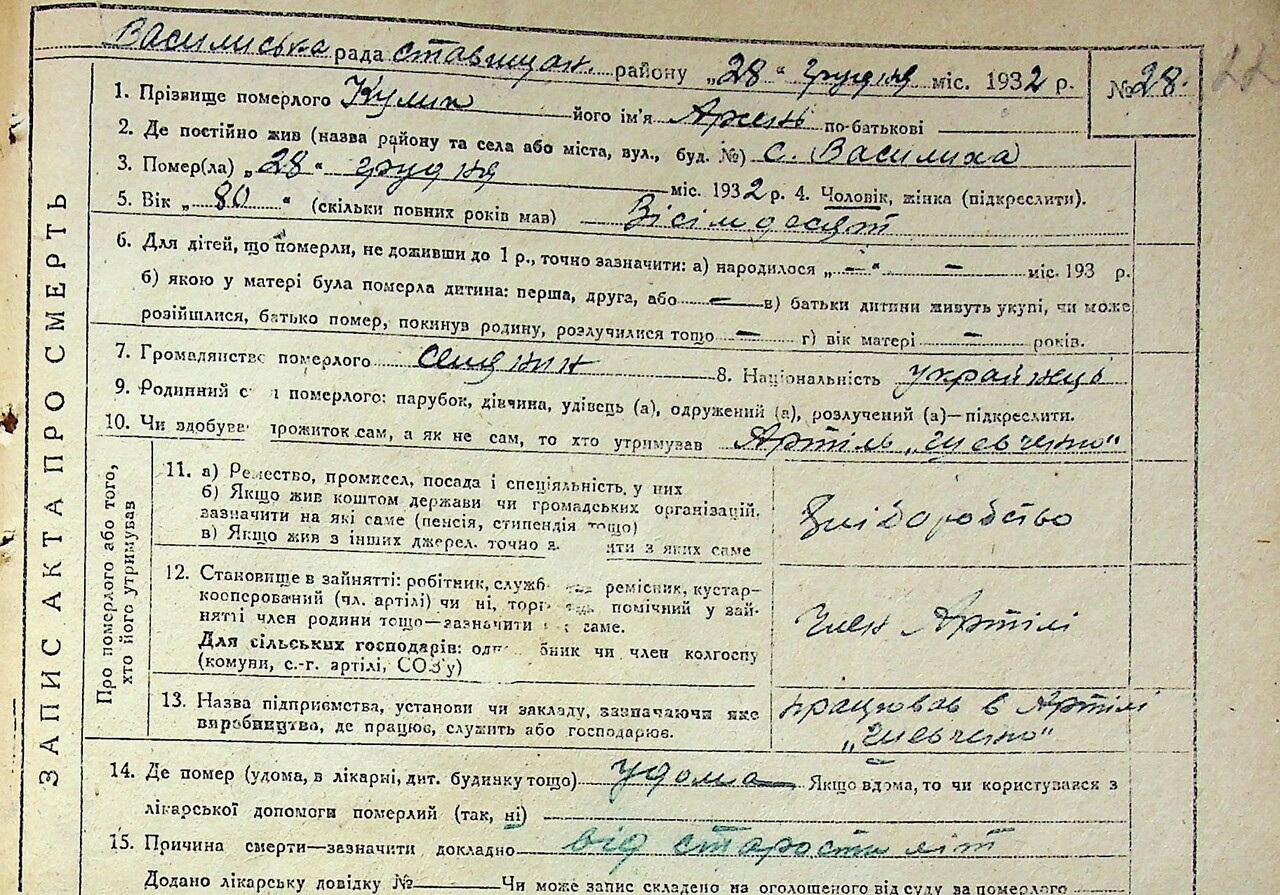 Василиська рада ставищан. району „28“ грудня міс. 1932 р. №28. 22
ЗАПИС АКТА ПРО СМЕРТЬ
1. Прізвище померлого Кулик його ім'я Арсень по-батькові
2. Де постійно жив (назва району та села або міста, вул., буд. №) с. Василиха
3. Помер(ла) „28“ грудня міс. 1932 р. 4. Чоловік, жінка (підкреслити).
5. Вік „80“ (скільки повних років мав) Вісімдесят
6. Для дітей, що померли, не доживши до 1 р., точно зазначити: а) народилося „—“ — міс. 193 р.
б) якою у матері була померла дитина: перша, друга, або — в) батьки дитини живуть укупі, чи може
розійшлися, батько помер, покинув родину, розлучилися тощо — г) вік матері — років.
7. Громадянство померлого селянин 8. Національність українець
9. Родинний с н померлого: парубок, дівчина, удівець (а), одружений (а), розлучений (а)—підкреслити.
10. Чи здобував прожиток сам, а як не сам, то хто утримував Артіль „Шевченко“
Про померлого або того,
хто його утримував
11. а) Ремество, промисел, посада і спеціяльність у них
б) Якщо жив коштом держави чи громадських організацій,
зазначити на які саме (пенсія, стипендія тощо)
в) Якщо жив з інших джерел, точно з ти з яких саме
Хліборобство
12. Становище в зайнятті: робітник, служб ремісник, кустар-
кооперований (чл. артілі) чи ні, торг помічний у зай-
нятті член родини тощо—зазначити саме.
Для сільських господарів: одн бник чи член колгоспу
(комуни, с.-г. артілі, СОЗ'у)
Член Артілі
13. Назва підприємства, установи чи закладу, зазначаючи яке
виробництво, де працює, служить або господарює.
працював в Артілі
„Шевченко“
14. Де помер (удома, в лікарні, дит. будинку тощо) удома Якщо вдома, то чи користувався з
лікарської допомоги померлий (так, ні)
15. Причина смерти—зазначити докладно від старости літ
Додано лікарську довідку № Чи може запис складено на оголошеного від суду за померлого